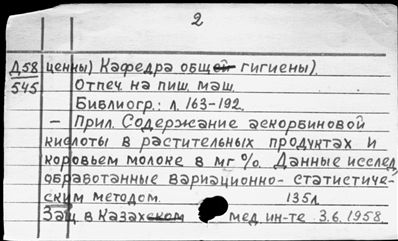 2
Д58 ценны) Кафедра общей гигиены).
545 Отпеч. на пиш. маш.
Библиогр.: л. 163-192.
— Прил. Содержание аскорбиновой
кислоты в растительных продуктах и
коровьем молоке в мг %. Данные исслед.
обработанные вариационно-статистиче-
ским методом. 135л.
Защ в Казахском мед. ин-те 3.6.1958